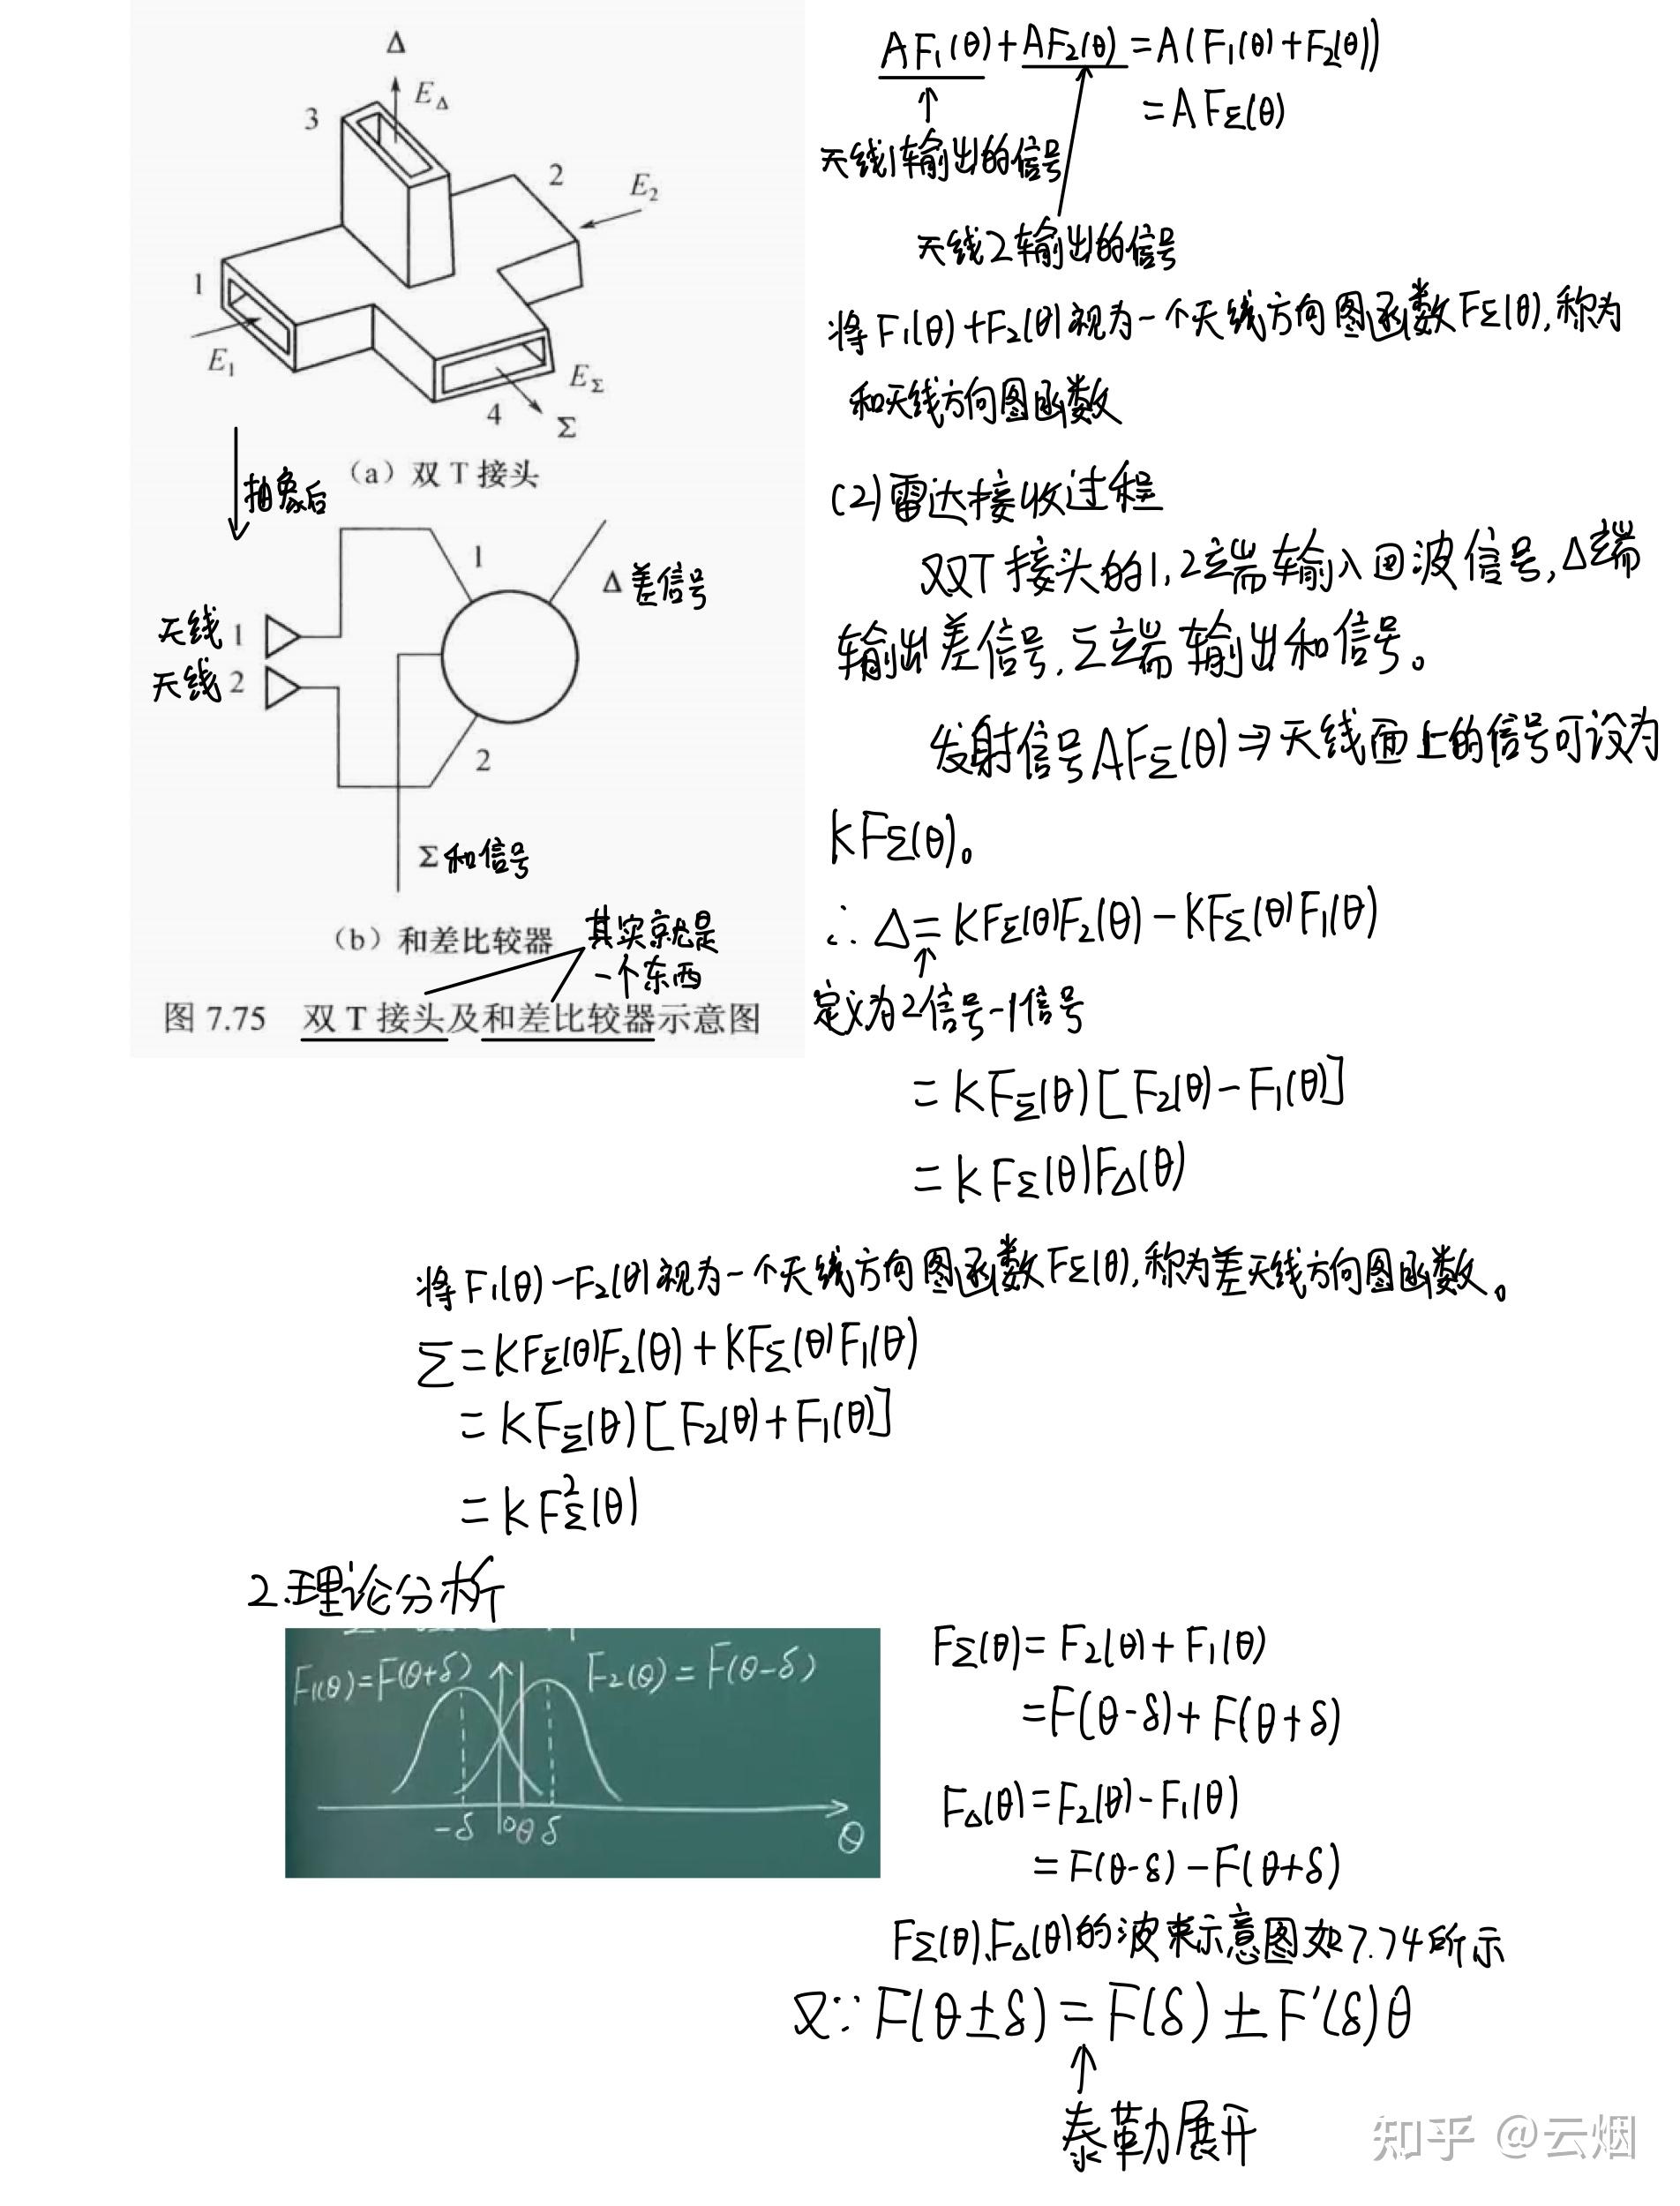 Δ
E_Δ
3
2
E₂
1
E₁
E_Σ
4
Σ
(a) 双 T 接头
抽象后
1
Δ 差信号
天线 1
天线 2
2
Σ 和信号
(b) 和差比较器
其实就是
一个东西
图 7.75 双 T 接头及和差比较器示意图
AF₁(θ)+AF₂(θ)=A(F₁(θ)+F₂(θ))
=AF_Σ(θ)
天线1输出的信号
天线2输出的信号
将F₁(θ)+F₂(θ)视为一个天线方向图函数F_Σ(θ),称为
和天线方向图函数
(2)雷达接收过程
双T接头的1,2端输入回波信号,Δ端
输出差信号,Σ端输出和信号。
发射信号AF_Σ(θ)⇒天线面上的信号可设为
KF_Σ(θ)。
∴Δ=KF_Σ(θ)F₂(θ)-KF_Σ(θ)F₁(θ)
定义为2信号-1信号
=KF_Σ(θ)[F₂(θ)-F₁(θ)]
=KF_Σ(θ)F_Δ(θ)
将F₁(θ)-F₂(θ)视为一个天线方向图函数F_Σ(θ),称为差天线方向图函数。
Σ=KF_Σ(θ)F₂(θ)+KF_Σ(θ)F₁(θ)
=KF_Σ(θ)[F₂(θ)+F₁(θ)]
=KF_Σ²(θ)
2.理论分析
F₁(θ)=F(θ+δ)
F₂(θ)=F(θ-δ)
-δ 0 θ δ
θ
F_Σ(θ)=F₂(θ)+F₁(θ)
=F(θ-δ)+F(θ+δ)
F_Δ(θ)=F₂(θ)-F₁(θ)
=F(θ-δ)-F(θ+δ)
F_Σ(θ)、F_Δ(θ)的波束示意图如7.74所示
又∵F(θ±δ)=F(δ)±F'(δ)θ
泰勒展开
知乎 @云烟